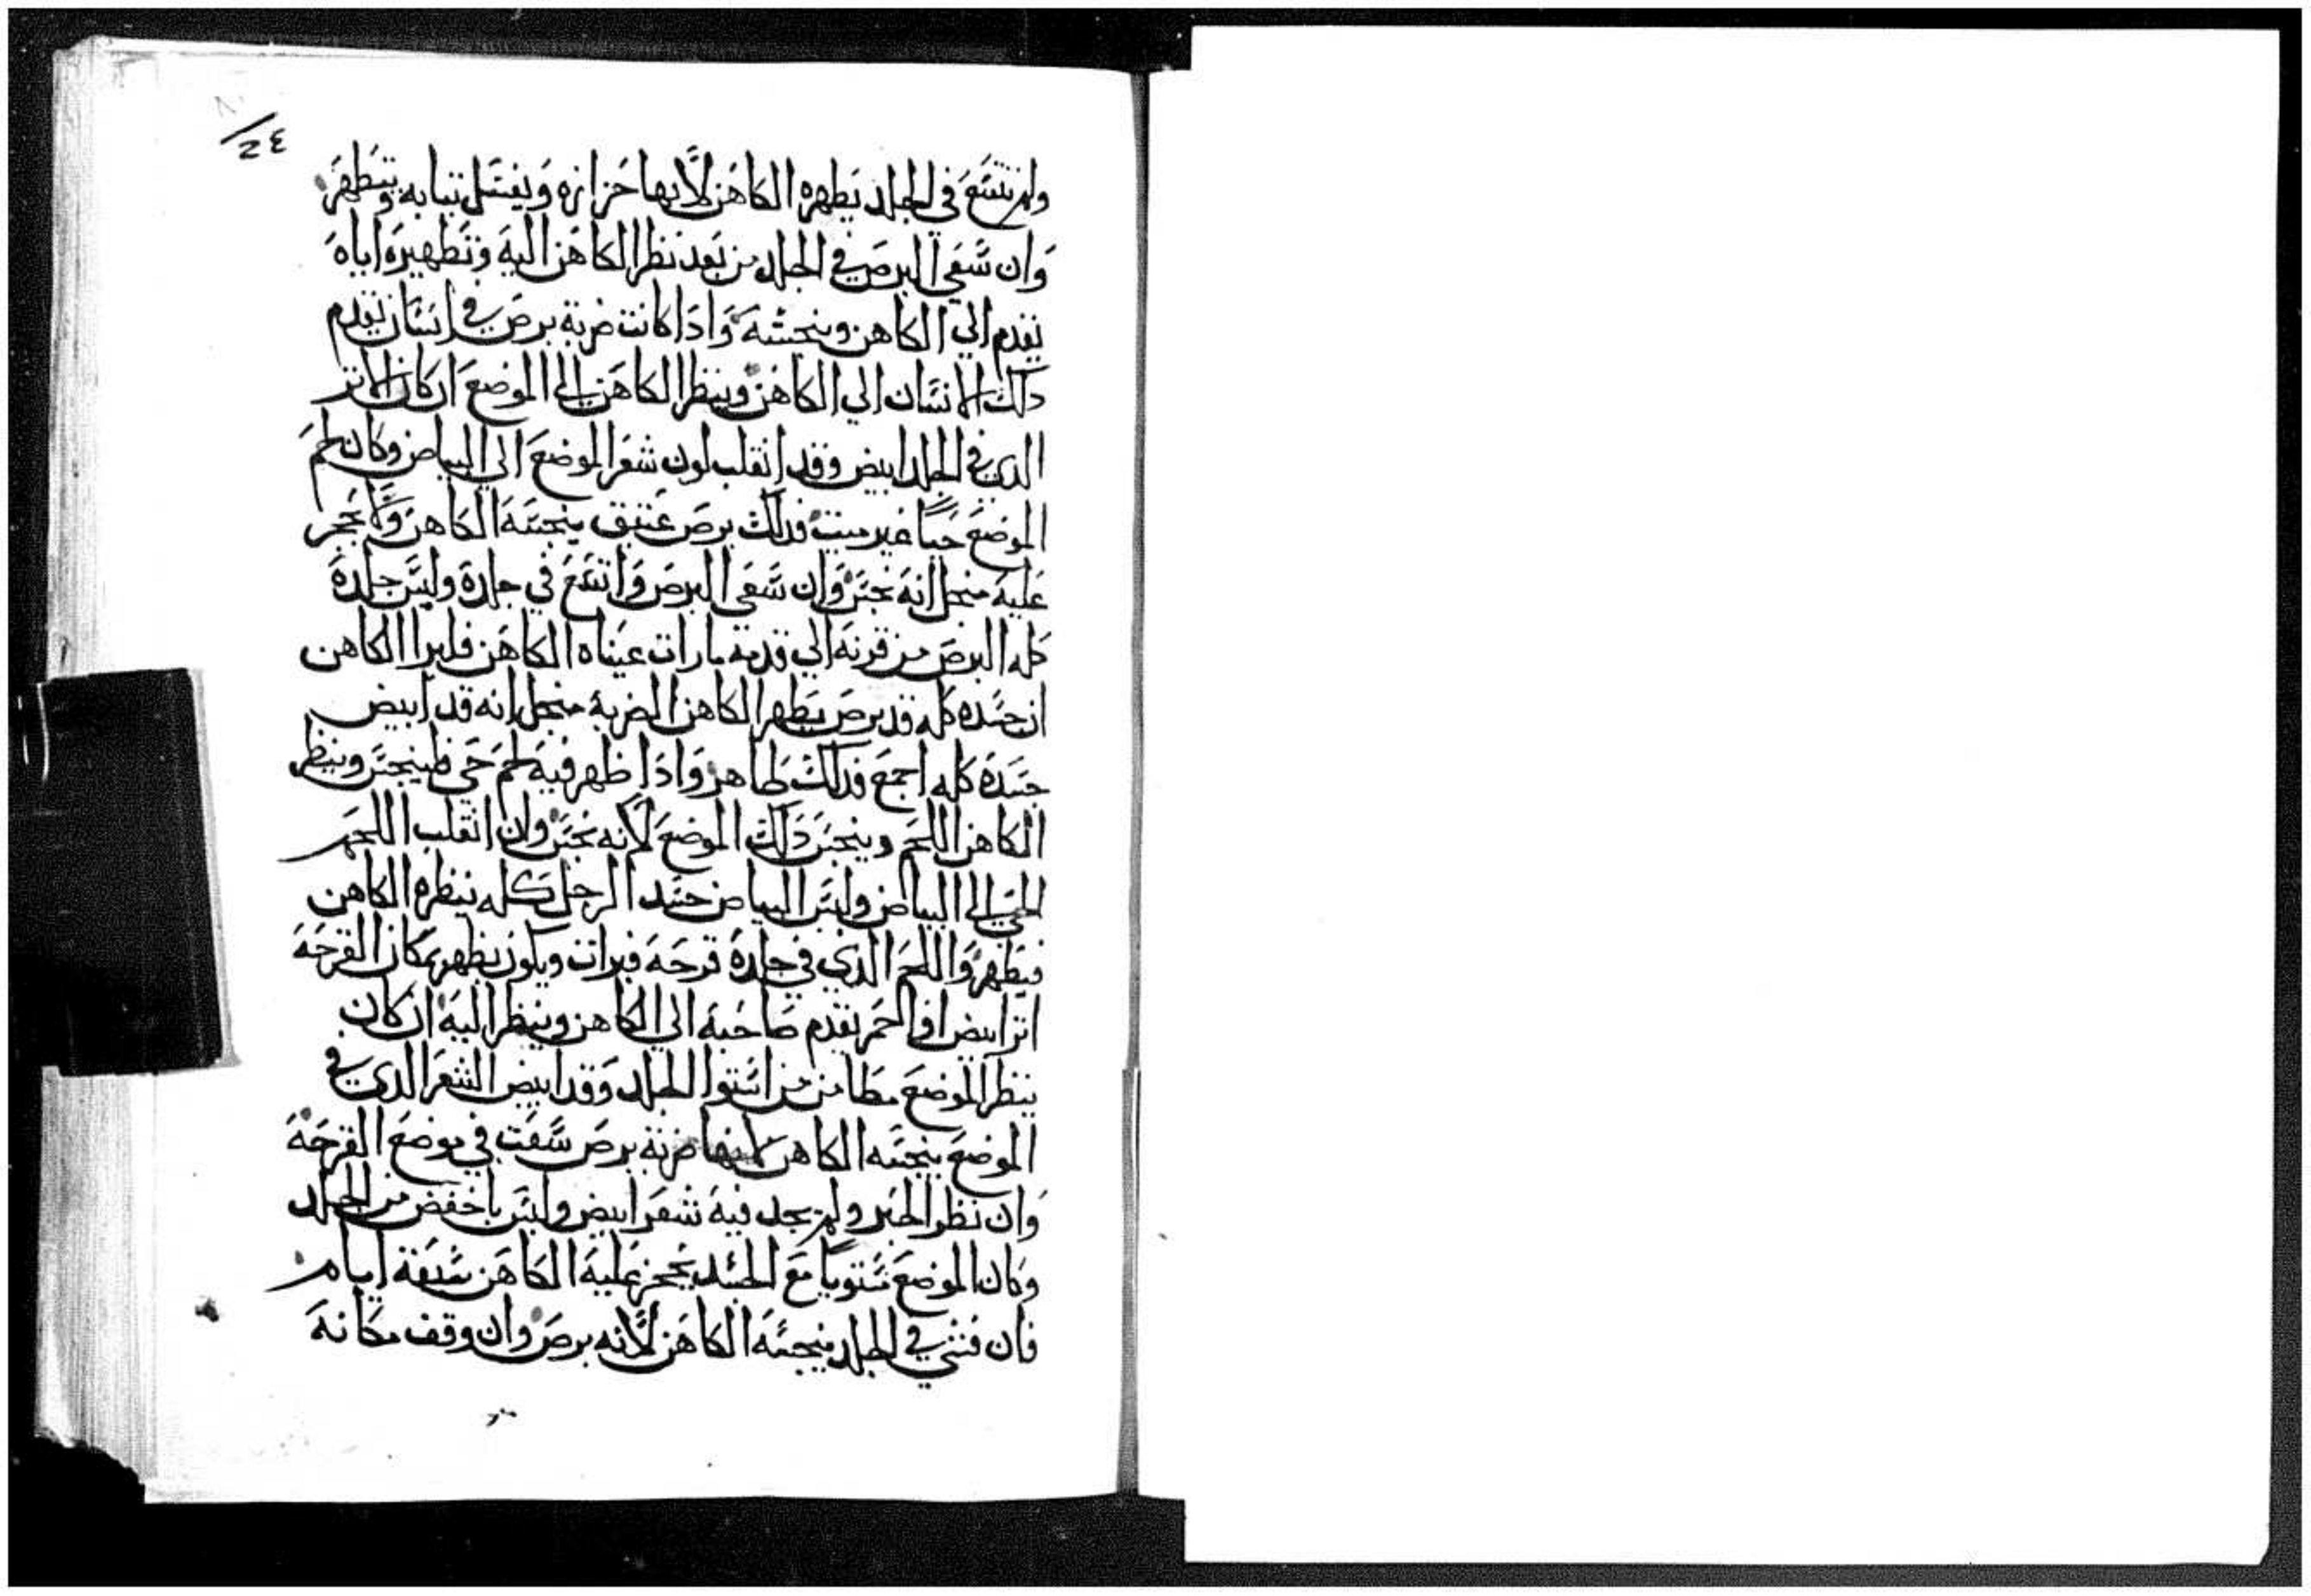 ٢٤
ولم تتسَع في الجلد يَطهره الكاهن لأنها حَزازه وَيغسَل تيابه وَيتَطهرَ
وَان سَعَى البرصَ في الجلد من بَعد نظر الكاهَن اليهَ وتَطهيرهَ اياهَ
يَقدم الي الكاهن وينجسَهَ وَادَا كانت ضربة برصَ في انسَان يَقدم
دلك الانسَان الي الكاهَن وينظر الكاهَن الي الموضعَ ان كان الاتر
الدي في الجلد ابيض وقد انقلب لون شعَر الموضعَ الي البياض وكان لحمَ
الموضعَ حَياً غير ميت فدلك برصَ عَتيق ينجسَهَ الكاهن وَلا يحَجر
عَليهَ منجل انهَ نجسَ وَان سَعَى البرصَ وَاتسَعَ في جلدهَ ولبسَ جلدهَ
كله البرصَ من قرنهَ الي قدمهَ مارات عيناه الكاهَن فليرا الكاهن
ان جسَده كله قد برصَ يَطهر الكاهن الضربة منجل انه قد ابيض
جسَدهَ كله اجمعَ فدلكَ طاهر وَادَا ظهر فيهَ لحمَ حَي فلينجسَ وينظر
الكاهن اللحمَ وينجسَ دَلك الموضعَ لأنه نجسَ وان انقلب اللحَم
الحَي الي البياض ولبسَ البياض جسَد الرجل كله ينظره الكاهن
فيَطهرَ وَاللحمَ الدي في جلدهَ قرحَهَ فبرات ويكون يظهر بمكان القرحَهَ
اتر ابيض او احَمر يقدم صَاحَبهَ الي الكاهن وينظر اليهَ ان كان
ينظر الموضعَ مطامن من استوا الجلد وَقد ابيض الشعَر الدي في
الموضعَ ينجسَه الكاهن لانها ضربة برصَ سَعَت في موضعَ القرحَهَ
وَان نظر الحَبر ولم يجد فيهَ شعَر ابيض وليسَ باخفض من الجلد
وكان الموضعَ مستوياً معَ الجسَد يحَجز عَليهَ الكاهَن سَبعَة ايام
فان فشي في الجلد ينجسَهَ الكاهَن لأنه برصَ وان وقف مكانهَ